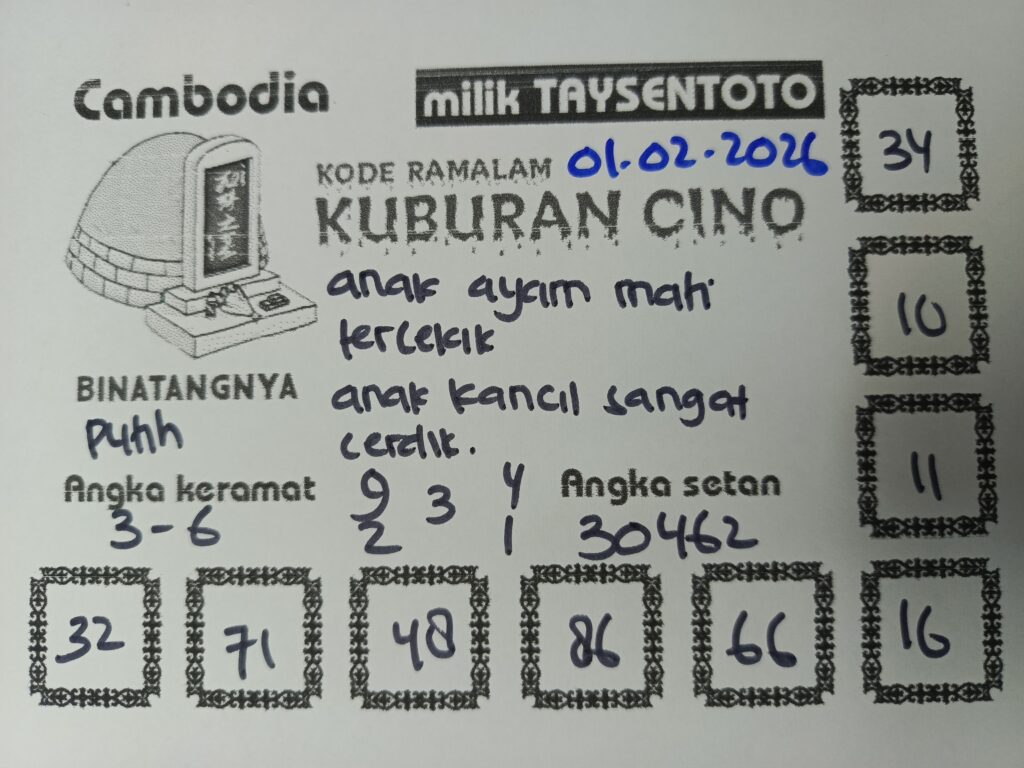 Cambodia
milik TAYSENTOTO
KODE RAMALAM 01.02.2026
KUBURAN CINO
anak ayam mati
tercekik
anak kancil sangat
cerdik.
BINATANGNYA
Putih
Angka keramat
3-6
9 3 4
2 1
Angka setan
30462
34
10
11
16
32 71 48 86 66